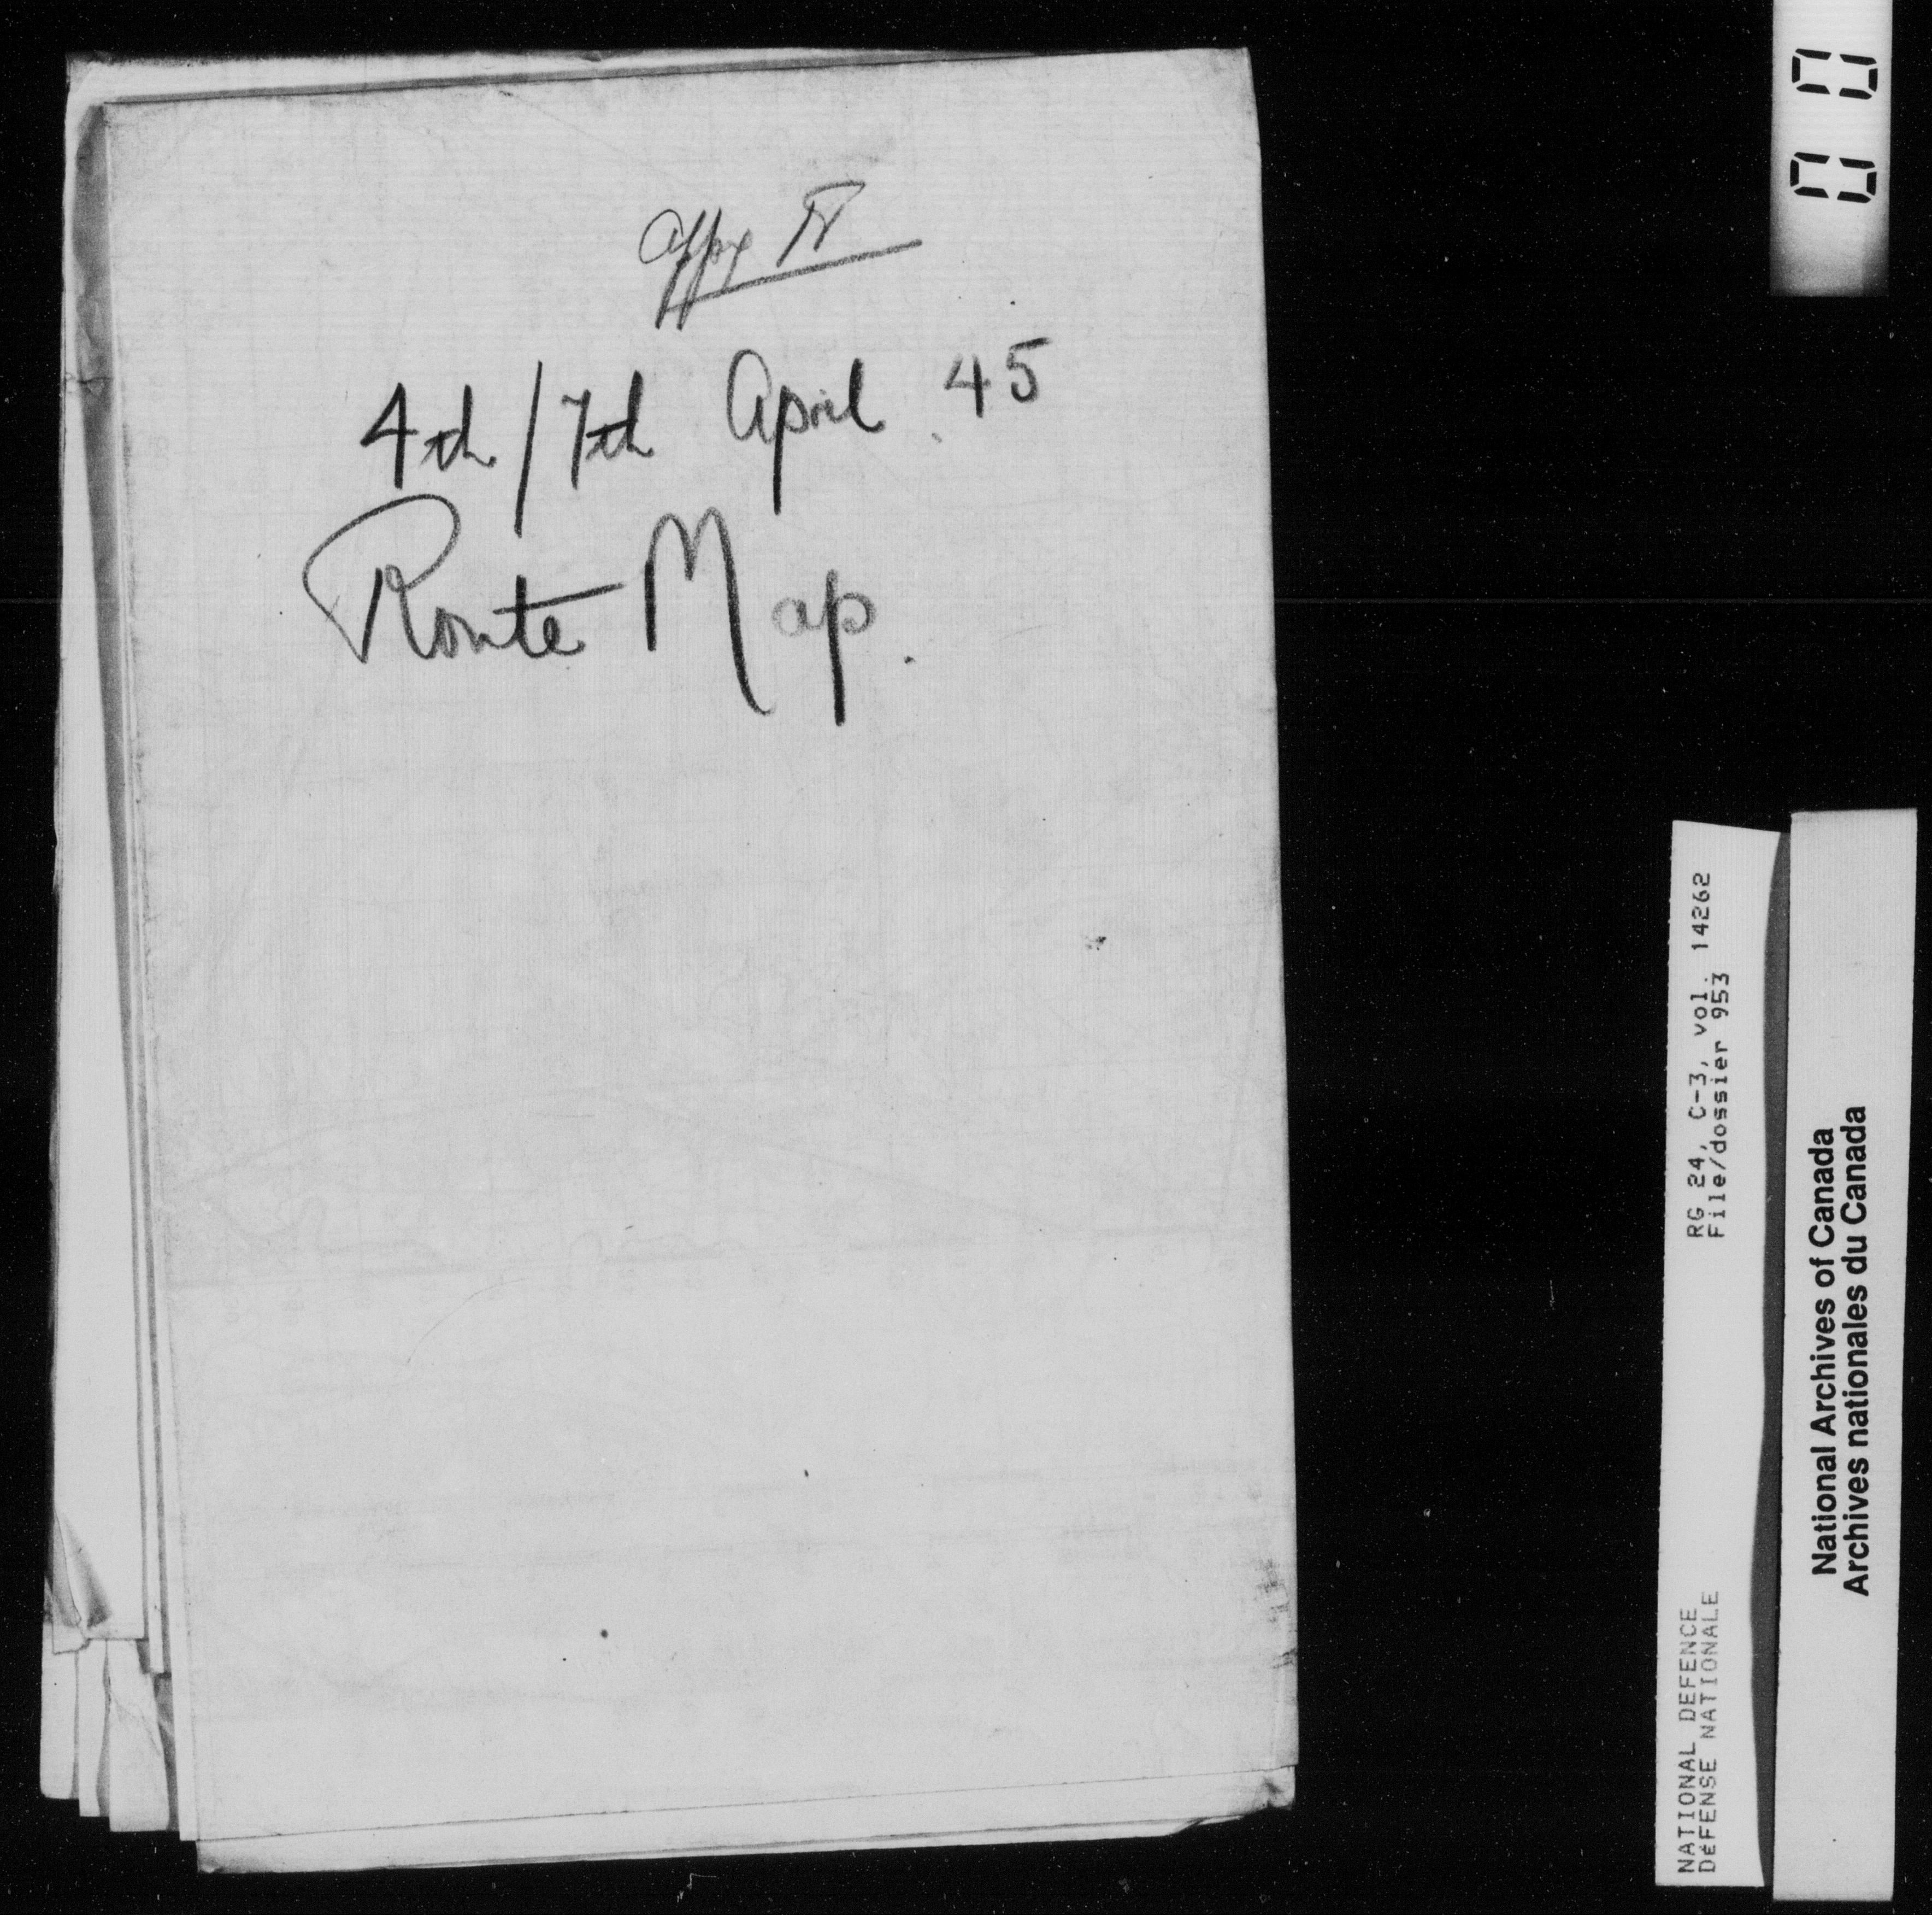 Appx
4th/7th April .45
Route Map.
RG 24, C-3, vol. 14262
File/dossier 953
NATIONAL DEFENCE
DéFENSE NATIONALE
National Archives of Canada
Archives nationales du Canada